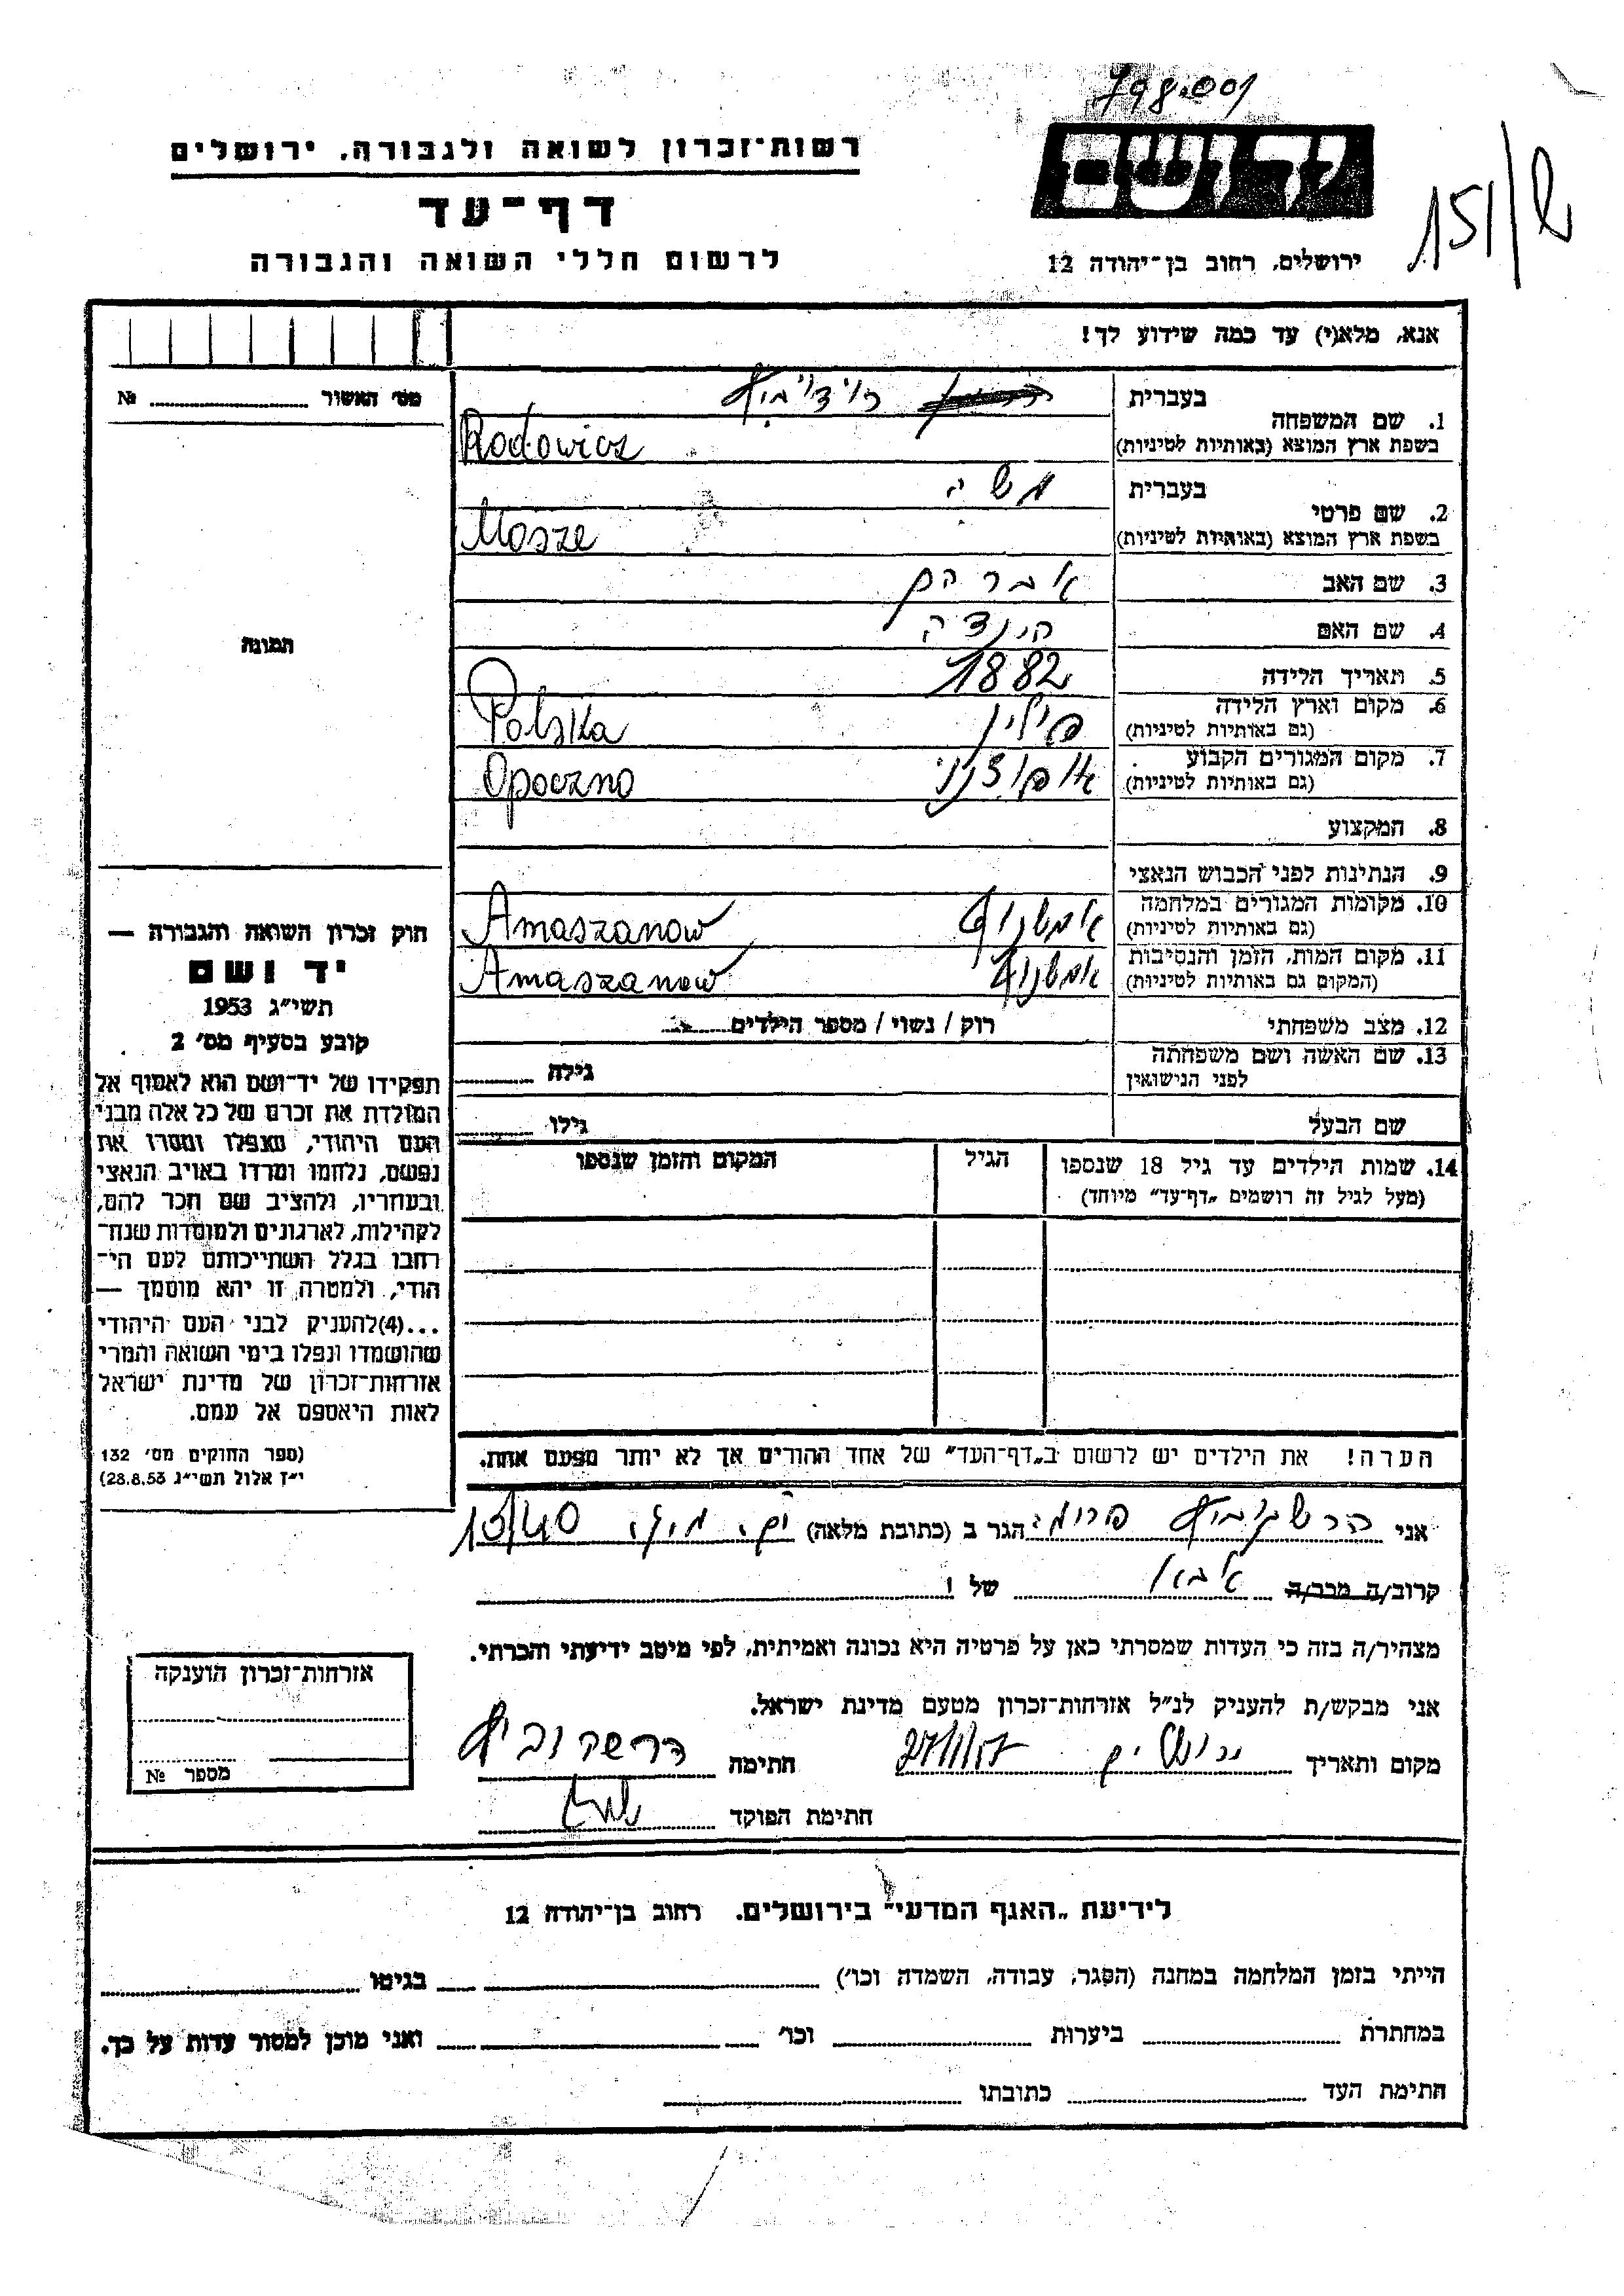 798.001
רשות־זכרון לשואה ולגבורה, ירושלים
יד ושם
151/ש
דף־עד
לרשום חללי השואה והגבורה
ירושלים, רחוב בן־יהודה 12
אנא, מלא(י) עד כמה שידוע לך!
מס׳ האשור № 
1. שם המשפחה
בעברית
בשפת ארץ המוצא (באותיות לטיניות)
Rodowicz
2. שם פרטי
בעברית משה
בשפת ארץ המוצא (באותיות לטיניות)
Mosze
3. שם האב אברהם
4. שם האם הינדה
תמונה
5. תאריך הלידה 1882
6. מקום וארץ הלידה פולין Polska
(גם באותיות לטיניות)
7. מקום המגורים הקבוע Opoczno
(גם באותיות לטיניות)
8. המקצוע
9. הנתינות לפני הכבוש הנאצי
10. מקומות המגורים במלחמה אמשנוף Amaszanow
(גם באותיות לטיניות)
11. מקום המות, הזמן והנסיבות אמשנוף Amaszanow
(המקום גם באותיות לטיניות)
12. מצב משפחתי רוק / נשוי / מספר הילדים
13. שם האשה ושם משפחתה
לפני הנישואין גילה
שם הבעל גילו
14. שמות הילדים עד גיל 18 שנספו הגיל המקום והזמן שנספו
(מעל לגיל זה רושמים „דף־עד״ מיוחד)
הערה! את הילדים יש לרשום ב„דף־העד״ של אחד ההורים אך לא יותר מפעם אחת.
חוק זכרון השואה והגבורה —
יד ושם
תשי״ג 1953
קובע בסעיף מס׳ 2
תפקידו של יד־ושם הוא לאסוף אל
המולדת את זכרם של כל אלה מבני
העם היהודי, שנפלו ומסרו את
נפשם, נלחמו ומרדו באויב הנאצי
ובעוזריו, ולהציב שם וזכר להם,
לקהילות, לארגונים ולמוסדות שנח־
רבו בגלל השתייכותם לעם הי־
הודי, ולמטרה זו יהא מוסמך —
...(4)להעניק לבני העם היהודי
שהושמדו ונפלו בימי השואה והמרי
אזרחות־זכרון של מדינת ישראל
לאות היאספם אל עמם.
(ספר החוקים מס׳ 132
י״ז אלול תשי״ג 28.8.53)
אני פרומה הגר ב (כתובת מלאה)
קרוב/ה מכר/ה אבא של
מצהיר/ה בזה כי העדות שמסרתי כאן על פרטיה היא נכונה ואמיתית, לפי מיטב ידיעתי והכרתי.
אני מבקש/ת להעניק לנ״ל אזרחות־זכרון מטעם מדינת ישראל.
מקום ותאריך ירושלים חתימה
חתימת הפוקד
אזרחות־זכרון הוענקה
מספר №
לידיעת „האגף המדעי״ בירושלים. רחוב בן־יהודה 12
הייתי בזמן המלחמה במחנה (הסגר, עבודה, השמדה וכו׳) בגיטו
במחתרת ביערות וכו׳ ואני מוכן למסור עדות על כך.
חתימת העד כתובתו